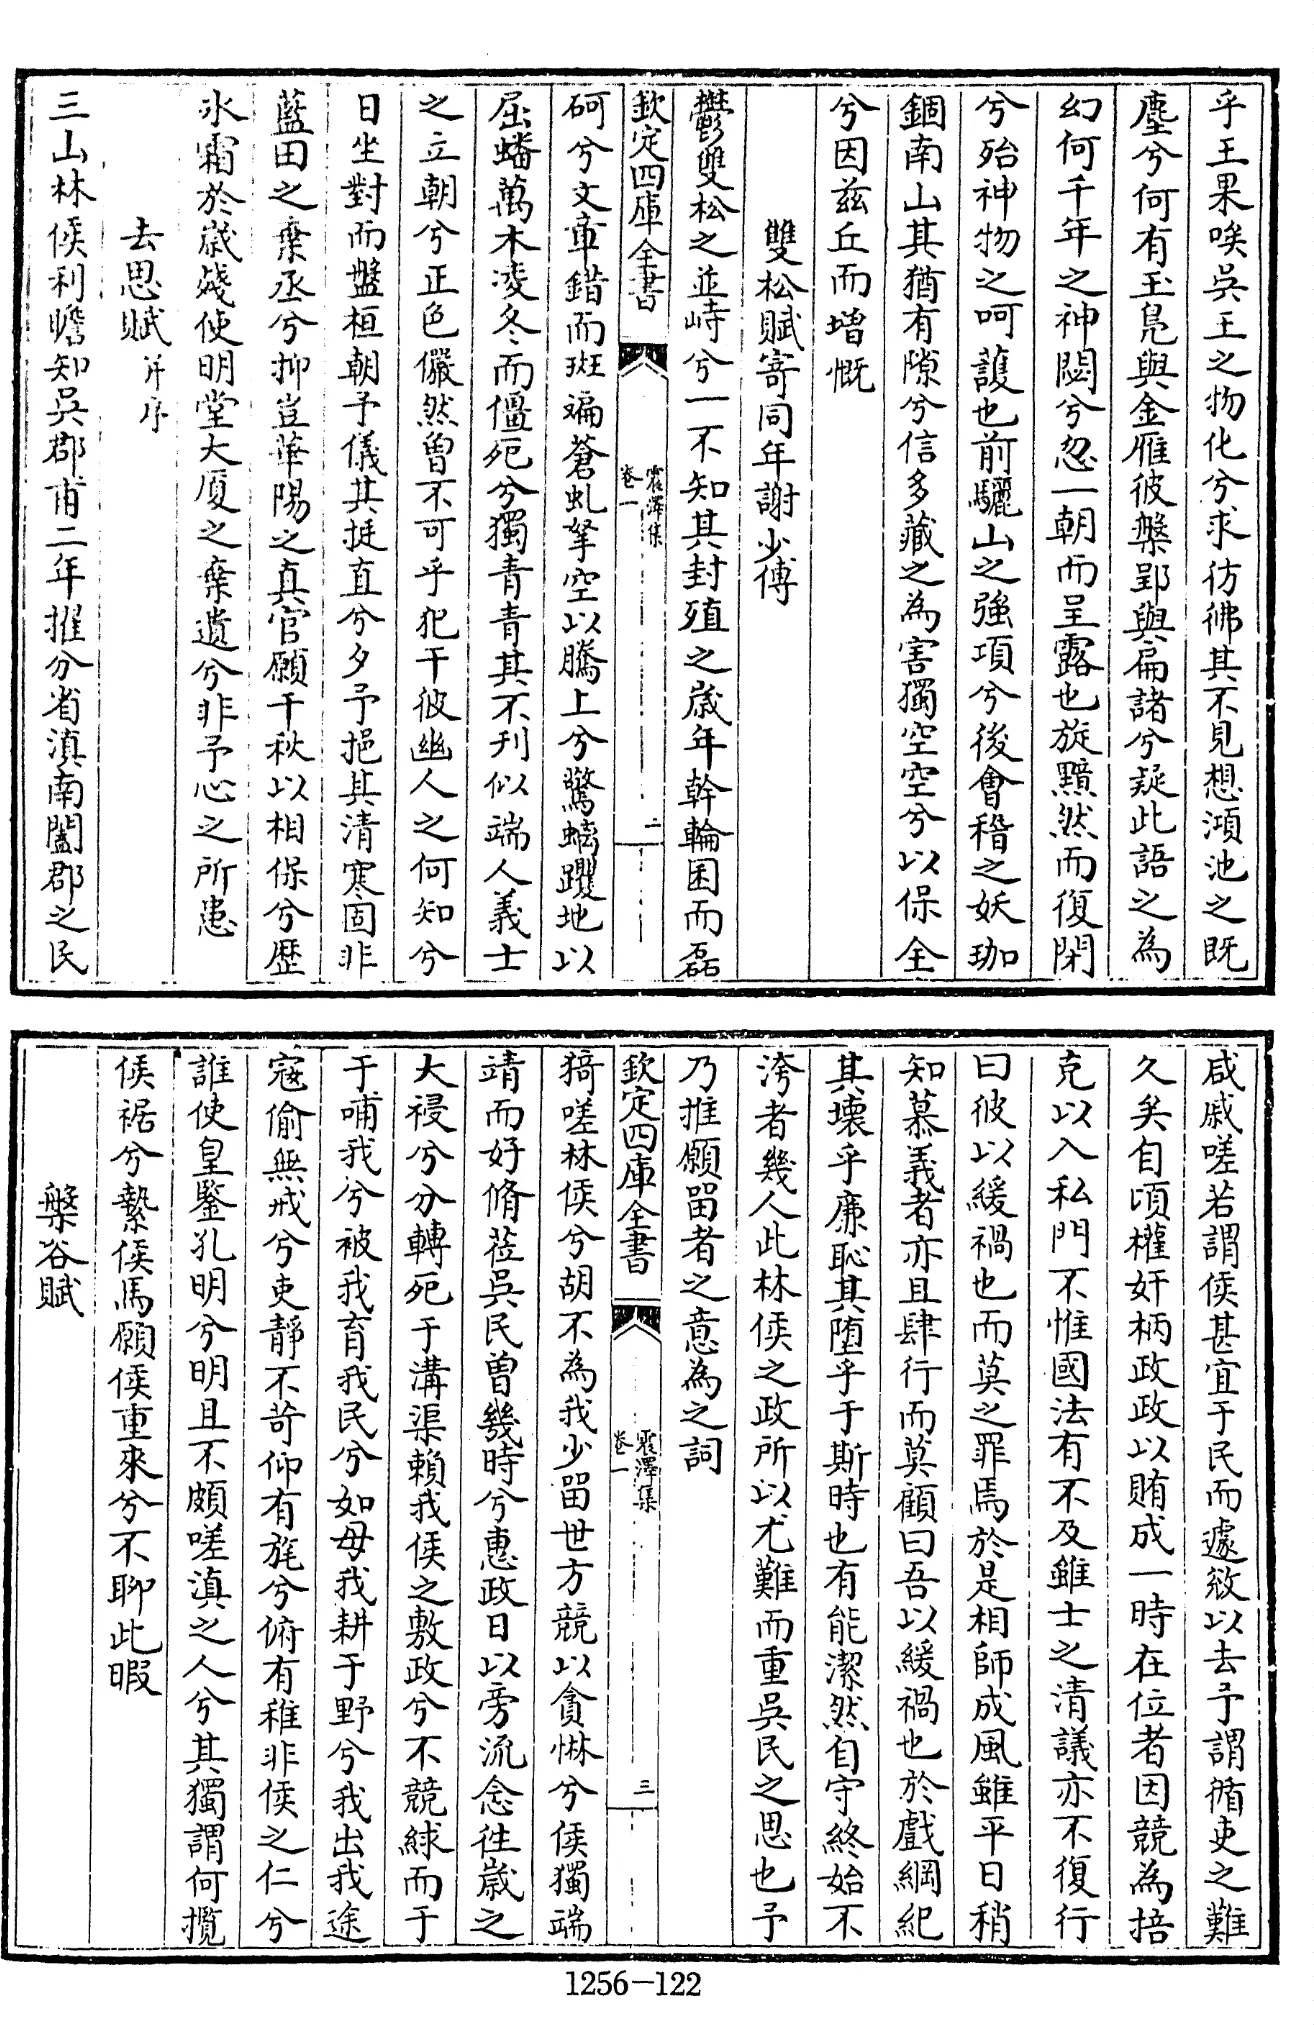 乎王果唉吳王之物化兮求彷彿其不見想澒池之既
塵兮何有玉鳧與金雁彼槃郢與扁諸兮疑此語之為
幻何千年之神閟兮忽一朝而呈露也旋黯然而復閉
兮殆神物之呵護也前驪山之強項兮後會稽之妖珈
錮南山其猶有隙兮信多藏之為害獨空空兮以保全
兮因茲丘而增慨
雙松賦寄同年謝少傅
鬱雙松之並峙兮一不知其封殖之歲年幹輪囷而磊
欽定四庫全書
震澤集
卷一
二
砢兮文章錯而斑斒蒼虬拏空以騰上兮驚螭躩地以
屈蟠萬木凌冬而僵死兮獨青青其不刊似端人義士
之立朝兮正色儼然曾不可乎犯干彼幽人之何知兮
日坐對而盤桓朝予儀其挺直兮夕予挹其清寒固非
藍田之棄丞兮抑豈華陽之真官願千秋以相保兮歷
氷霜於歲殘使明堂大厦之棄遺兮非予心之所患
去思賦并序
三山林侯利瞻知吳郡甫二年推分省滇南闔郡之民
咸戚嗟若謂侯甚宜于民而遽敚以去予謂循吏之難
久矣自頃權奸柄政政以賄成一時在位者因競為掊
克以入私門不惟國法有不及雖士之清議亦不復行
曰彼以緩禍也而莫之罪焉於是相師成風雖平日稍
知慕義者亦且肆行而莫顧曰吾以緩禍也於戲綱紀
其壞乎廉恥其墮乎于斯時也有能潔然自守終始不
涔者幾人此林侯之政所以尤難而重吳民之思也予
乃推願留者之意為之詞
欽定四庫全書
震澤集
卷一
三
猗嗟林侯兮胡不為我少留世方競以貪惏兮侯獨端
靖而好脩莅吳民曾幾時兮惠政日以旁流念徃歲之
大祲兮分轉死于溝渠賴我侯之敷政兮不競絿而于
于哺我兮被我育我民兮如母我耕于野兮我出我途
寇偷無戒兮吏靜不苛仰有旄兮俯有稚非侯之仁兮
誰使皇鑒孔明兮明且不頗嗟滇之人兮其獨謂何攬
侯裾兮縶侯馬願侯重來兮不聊此暇
槃谷賦
1256-122